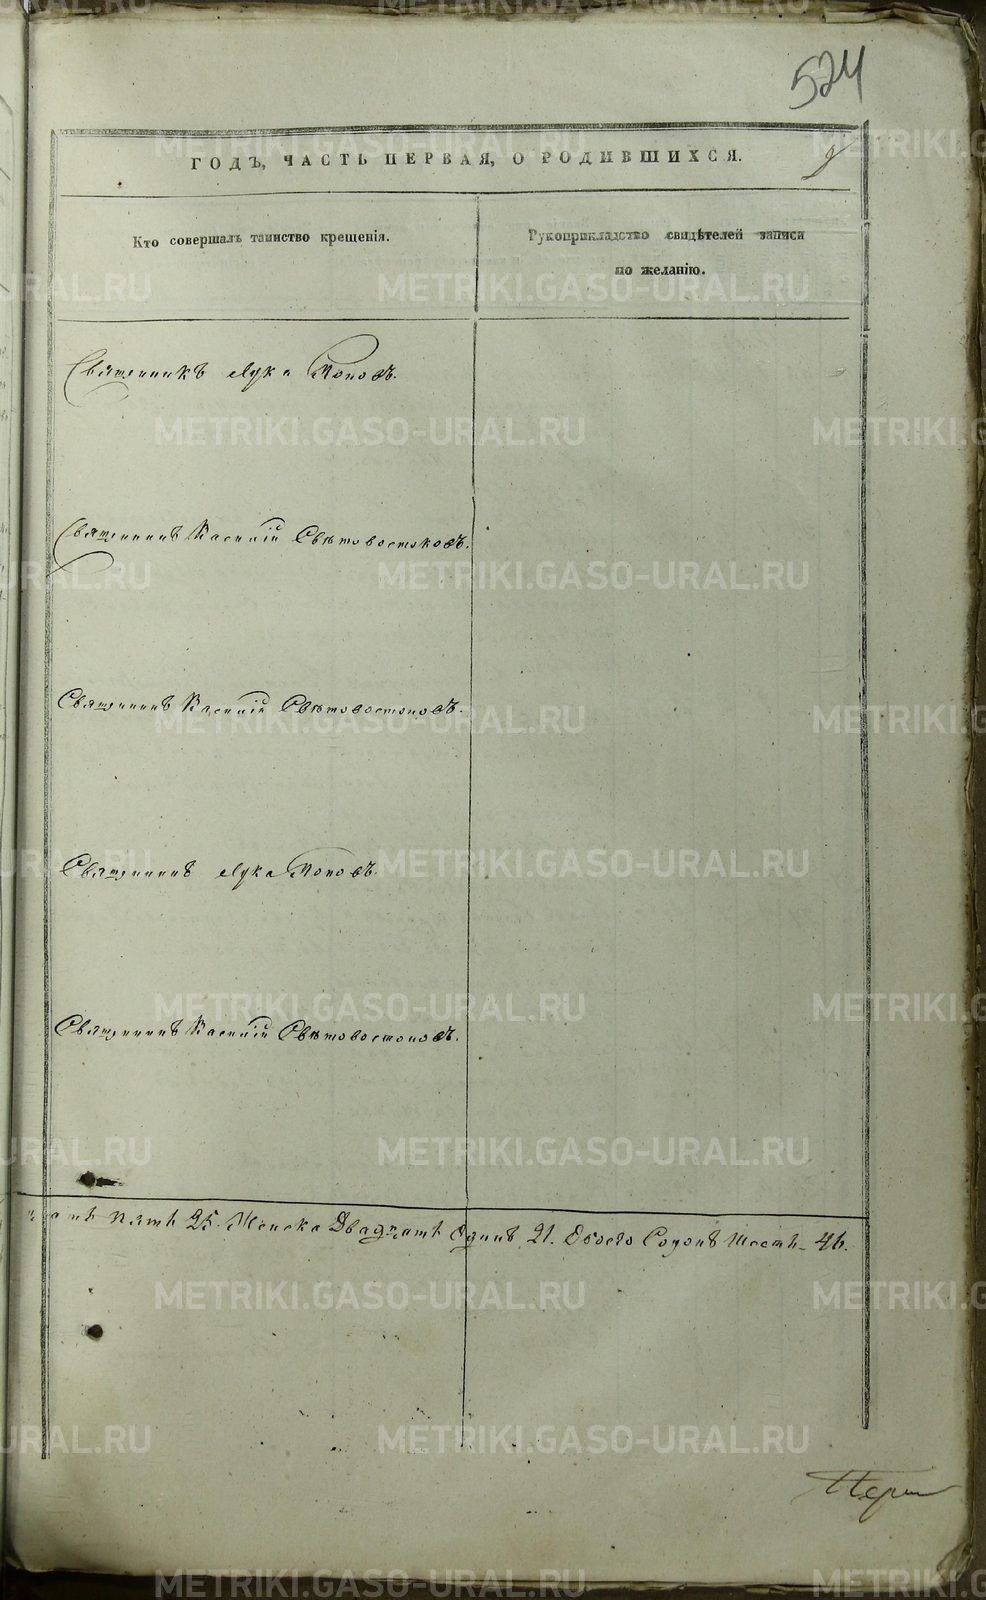 524
ГОДЪ, ЧАСТЬ ПЕРВАЯ, О РОДИВШИХСЯ.
9
Кто совершалъ таинство крещенія.
Рукоприкладство свидѣтелей записи
по желанію.
Священникъ Лука Поповъ.
Священникъ Василій Свѣтовостоковъ.
Священникъ Василій Свѣтовостоковъ.
Священникъ Лука Поповъ.
Священникъ Василій Свѣтовостоковъ.
пять 25. Женска Двадцать Одинъ 21. Обоего Сорокъ Шесть 46.
METRIKI.GASO-URAL.RU